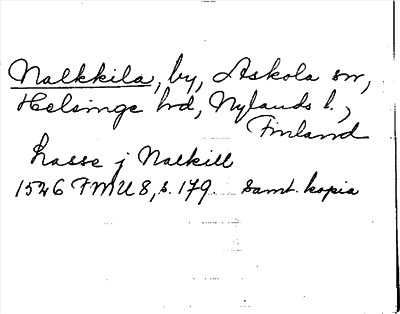 Nalkkila, by, Askola sn,
Helsinge hd, Nylands l.,
Finland
Lasse j Nalkill
1546 FMU 8, s. 179. Samt. kopia